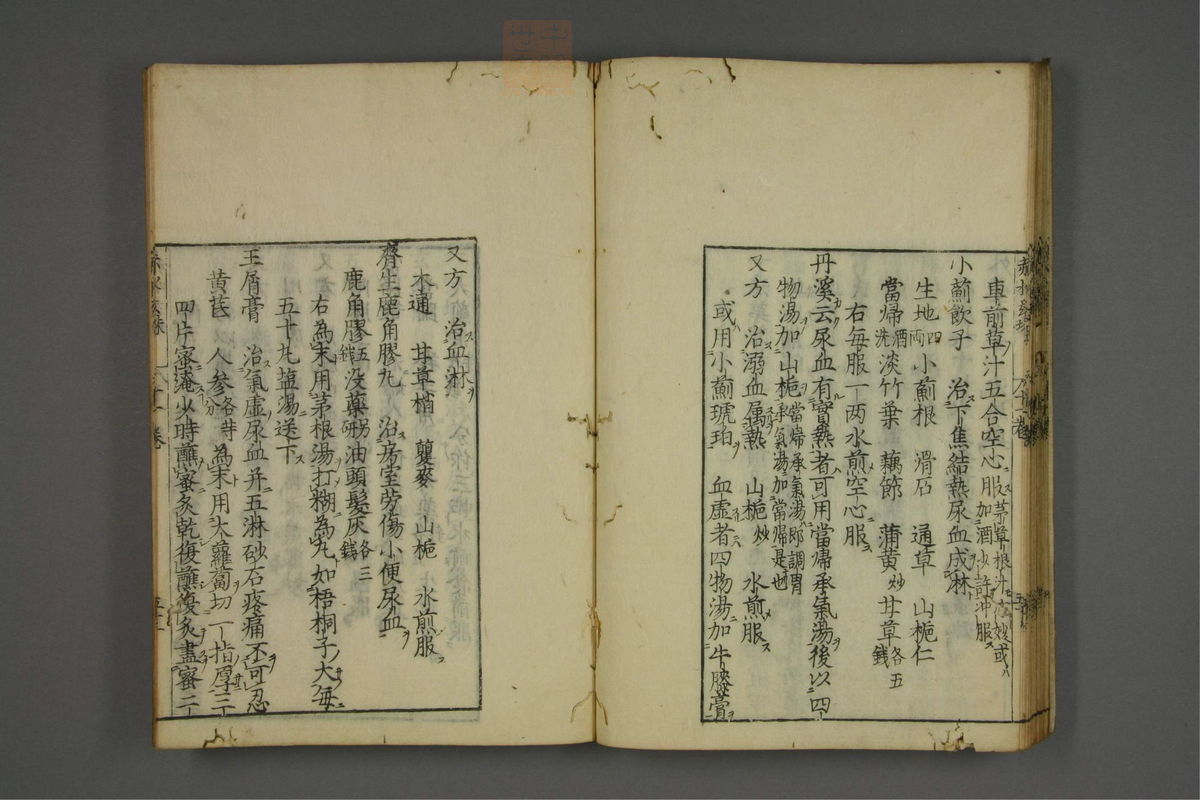 車前草汁五合空心服茅草根汁亦妙或加酒少許沖服
小薊飲子　治下焦結熱尿血成淋
生地四両小薊根　滑石　通草　山梔仁
當歸酒洗淡竹葉　藕節　蒲黄炒甘草各五錢
右毎服一两水煎空心服
丹溪云尿血有實熱者可用當帰承氣湯後以四
物湯加山梔當帰承氣湯即調胃承氣湯加當帰是也
又方　治溺血属熱　山梔炒　水煎服
或用小薊琥珀　血虚者四物湯加牛膝膏
又方　治血淋
木通　甘草梢　瞿麥　山梔　水煎服
齊生鹿角膠丸　治房室劳傷小便尿血
鹿角膠五錢没藥別研油頭髮灰各三錢
右為末用茅根湯打糊為丸如梧桐子大毎
五十丸盐湯送下
玉屑膏　治氣虚尿血并五淋砂石疼痛不可忍
黄芪　人參各等分為末用大蘿蔔切一指厚三
四片蜜淹少時蘸蜜炙乾復蘸復炙盡蜜二